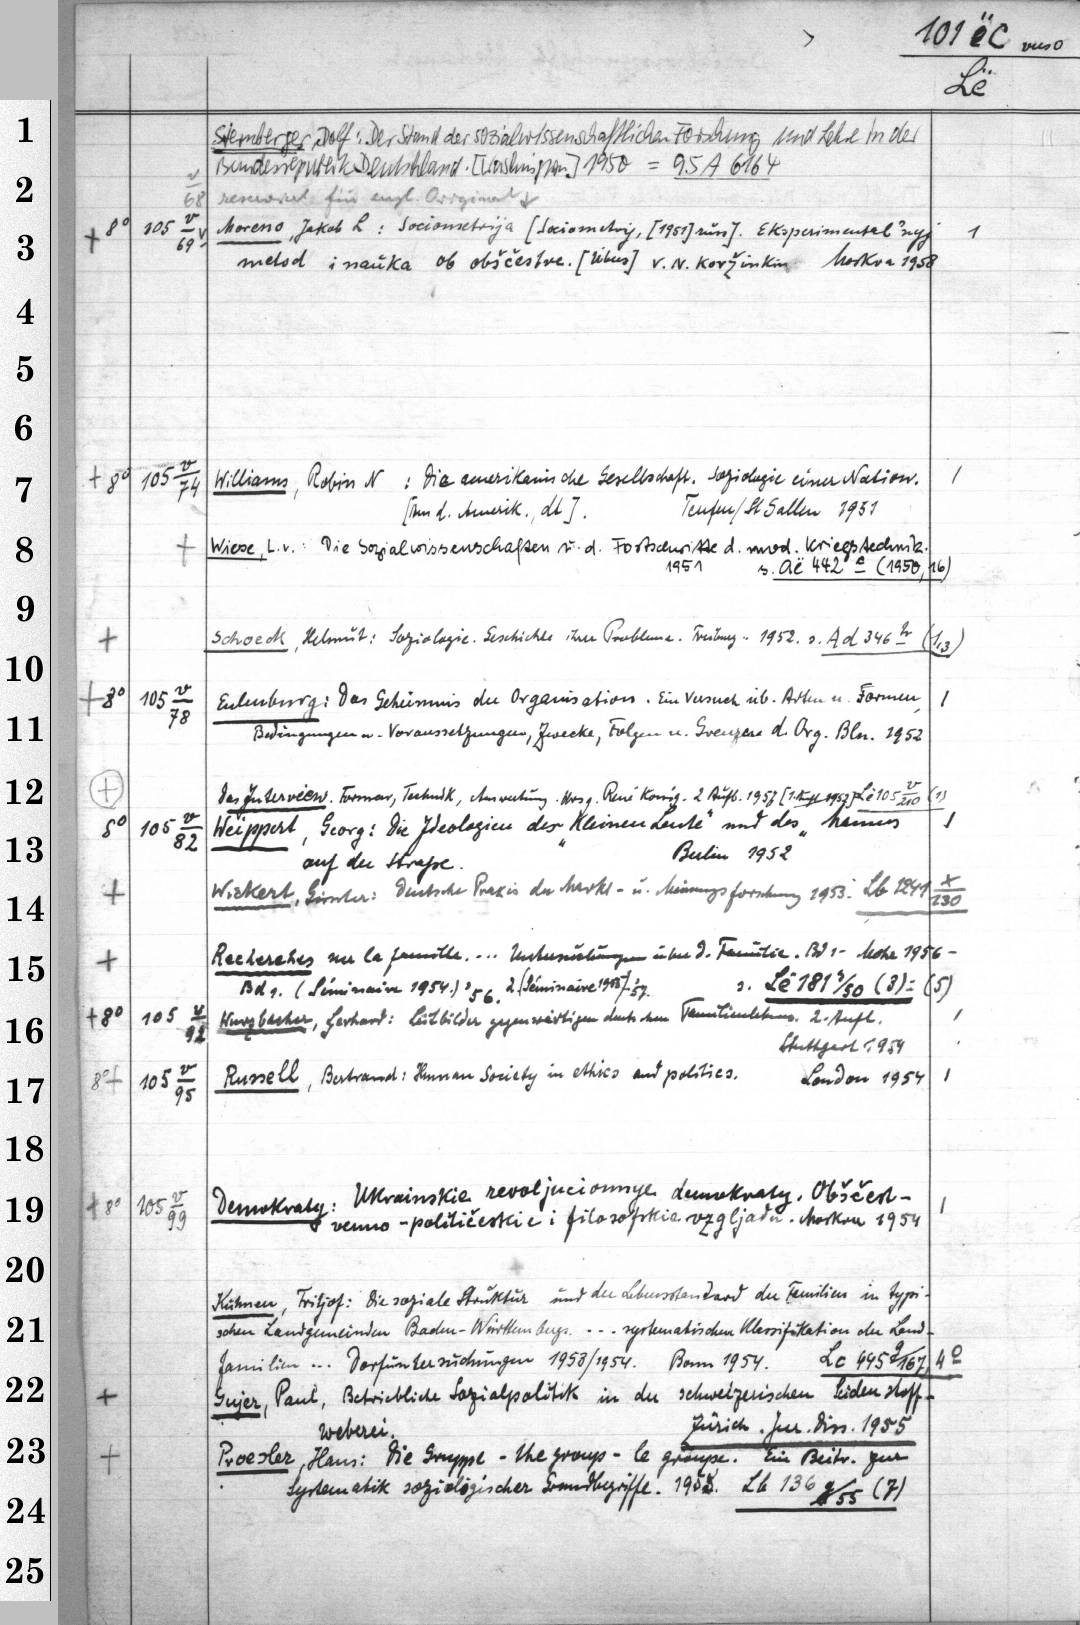 101 ëC
Lë
1 Sternberger, Dolf: Der Stand der sozialwissenschaftlichen Forschung und Lehre in der
Bundesrepublik Deutschland. [Washington] 1950 = 95 A 6164
2 v/68 reserviert für engl. Original
3 + 8° 105 v/69 Moreno, Jakob L: Sociometrija [Sociometry, [1951] russ]. Eksperimental'nyj 1
metod i nauka ob obščestve. [Übers] V. N. Koržinkin Moskva 1958
4
5
6
7 + 8° 105 v/74 Williams, Robin N: Die amerikanische Gesellschaft. Soziologie einer Nation. 1
[Aus d. Amerik., dt]. Teufen/St Gallen 1951
8 + Wiese, L.v.: Die Sozialwissenschaften u. d. Fortschritte d. mod. Kriegstechnik.
1951 s. Aë 442 e (1950, 16)
9
+ Schoeck, Helmut: Soziologie. Geschichte ihrer Probleme. Freiburg 1952. s. Ad 346 h (1,3)
10
+ 8° 105 v/78 Eulenburg: Das Geheimnis der Organisation. Ein Versuch üb. Arten u. Formen, 1
11 Bedingungen u. Voraussetzungen, Zwecke, Folgen u. Grenzen d. Org. Bln. 1952
12 + Das Interview. Formen, Technik, Auswertung. Hrsg. René König. 2 Aufl. 1957 [1. Aufl 1952] Lë 105 v/210 (1)
8° 105 v/82 Weippert, Georg: Die Ideologien der "Kleinen Leute" und des "Mannes 1
13 auf der Straße. Berlin 1952
14 + Wickert, Günter: Deutsche Praxis der Markt- u. Meinungsforschung 1953. Lb 1241 x/230
15 + Recherches sur la famille. ... Untersuchungen über d. Familie. Bd 1- Mohr 1956 -
Bd 1. (Séminaire 1954.) '56. 2. (Séminaire 1955) '57. s. Lë 181 3/50 (3) = (5)
16 + 8° 105 v/92 Wurzbacher, Gerhard: Leitbilder gegenwärtigen deutschen Familienlebens. 2. Aufl. 1
Stuttgart 1954
17 8° + 105 v/95 Russell, Bertrand: Human Society in ethics and politics. London 1954 1
18
19 + 8° 105 v/99 Demokraty: Ukrainskie revoljucionnye demokraty. Obščest- 1
venno-političeskie i filosofskie vzgljady. Moskva 1954
20 +
Kuhnen, Fritjof: Die soziale Struktur und der Lebensstandard der Familien in typi-
21 schen Landgemeinden Baden-Württembergs. ... systematischen Klassifikation der Land-
familien ... Dorfuntersuchungen 1953/1954. Bonn 1954. Lc 445 g/167, 4°
22 + Gujer, Paul, Betriebliche Sozialpolitik in der schweizerischen Seidenstoff-
weberei. Zürich. Jur. Diss. 1955
23 + Proesler, Hans: Die Gruppe - the group - le groupe. Ein Beitr. zur
Systematik soziologischer Grundbegriffe. 195 Lb 136 g/55 (7)
24
25